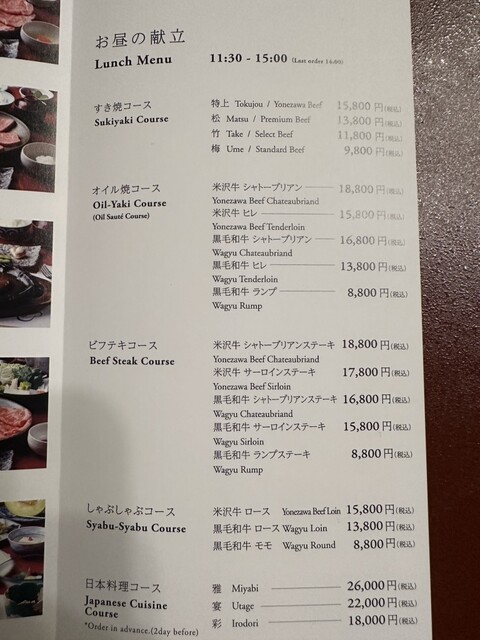 お昼の献立
Lunch Menu 11:30 - 15:00 (Last order 14:00)
すき焼コース
Sukiyaki Course
特上 Tokujou / Yonezawa Beef 15,800円(税込)
松 Matsu / Premium Beef 13,800円(税込)
竹 Take / Select Beef 11,800円(税込)
梅 Ume / Standard Beef 9,800円(税込)
オイル焼コース
Oil-Yaki Course
(Oil Sauté Course)
米沢牛 シャトーブリアン 18,800円(税込)
Yonezawa Beef Chateaubriand
米沢牛 ヒレ 15,800円(税込)
Yonezawa Beef Tenderloin
黒毛和牛 シャトーブリアン 16,800円(税込)
Wagyu Chateaubriand
黒毛和牛 ヒレ 13,800円(税込)
Wagyu Tenderloin
黒毛和牛 ランプ 8,800円(税込)
Wagyu Rump
ビフテキコース
Beef Steak Course
米沢牛 シャトーブリアンステーキ 18,800円(税込)
Yonezawa Beef Chateaubriand
米沢牛 サーロインステーキ 17,800円(税込)
Yonezawa Beef Sirloin
黒毛和牛 シャトーブリアンステーキ 16,800円(税込)
Wagyu Chateaubriand
黒毛和牛 サーロインステーキ 15,800円(税込)
Wagyu Sirloin
黒毛和牛 ランプステーキ 8,800円(税込)
Wagyu Rump
しゃぶしゃぶコース
Syabu-Syabu Course
米沢牛 ロース Yonezawa Beef Loin 15,800円(税込)
黒毛和牛 ロース Wagyu Loin 13,800円(税込)
黒毛和牛 モモ Wagyu Round 8,800円(税込)
日本料理コース
Japanese Cuisine
Course
*Order in advance.(2day before)
雅 Miyabi 26,000円(税込)
宴 Utage 22,000円(税込)
彩 Irodori 18,000円(税込)